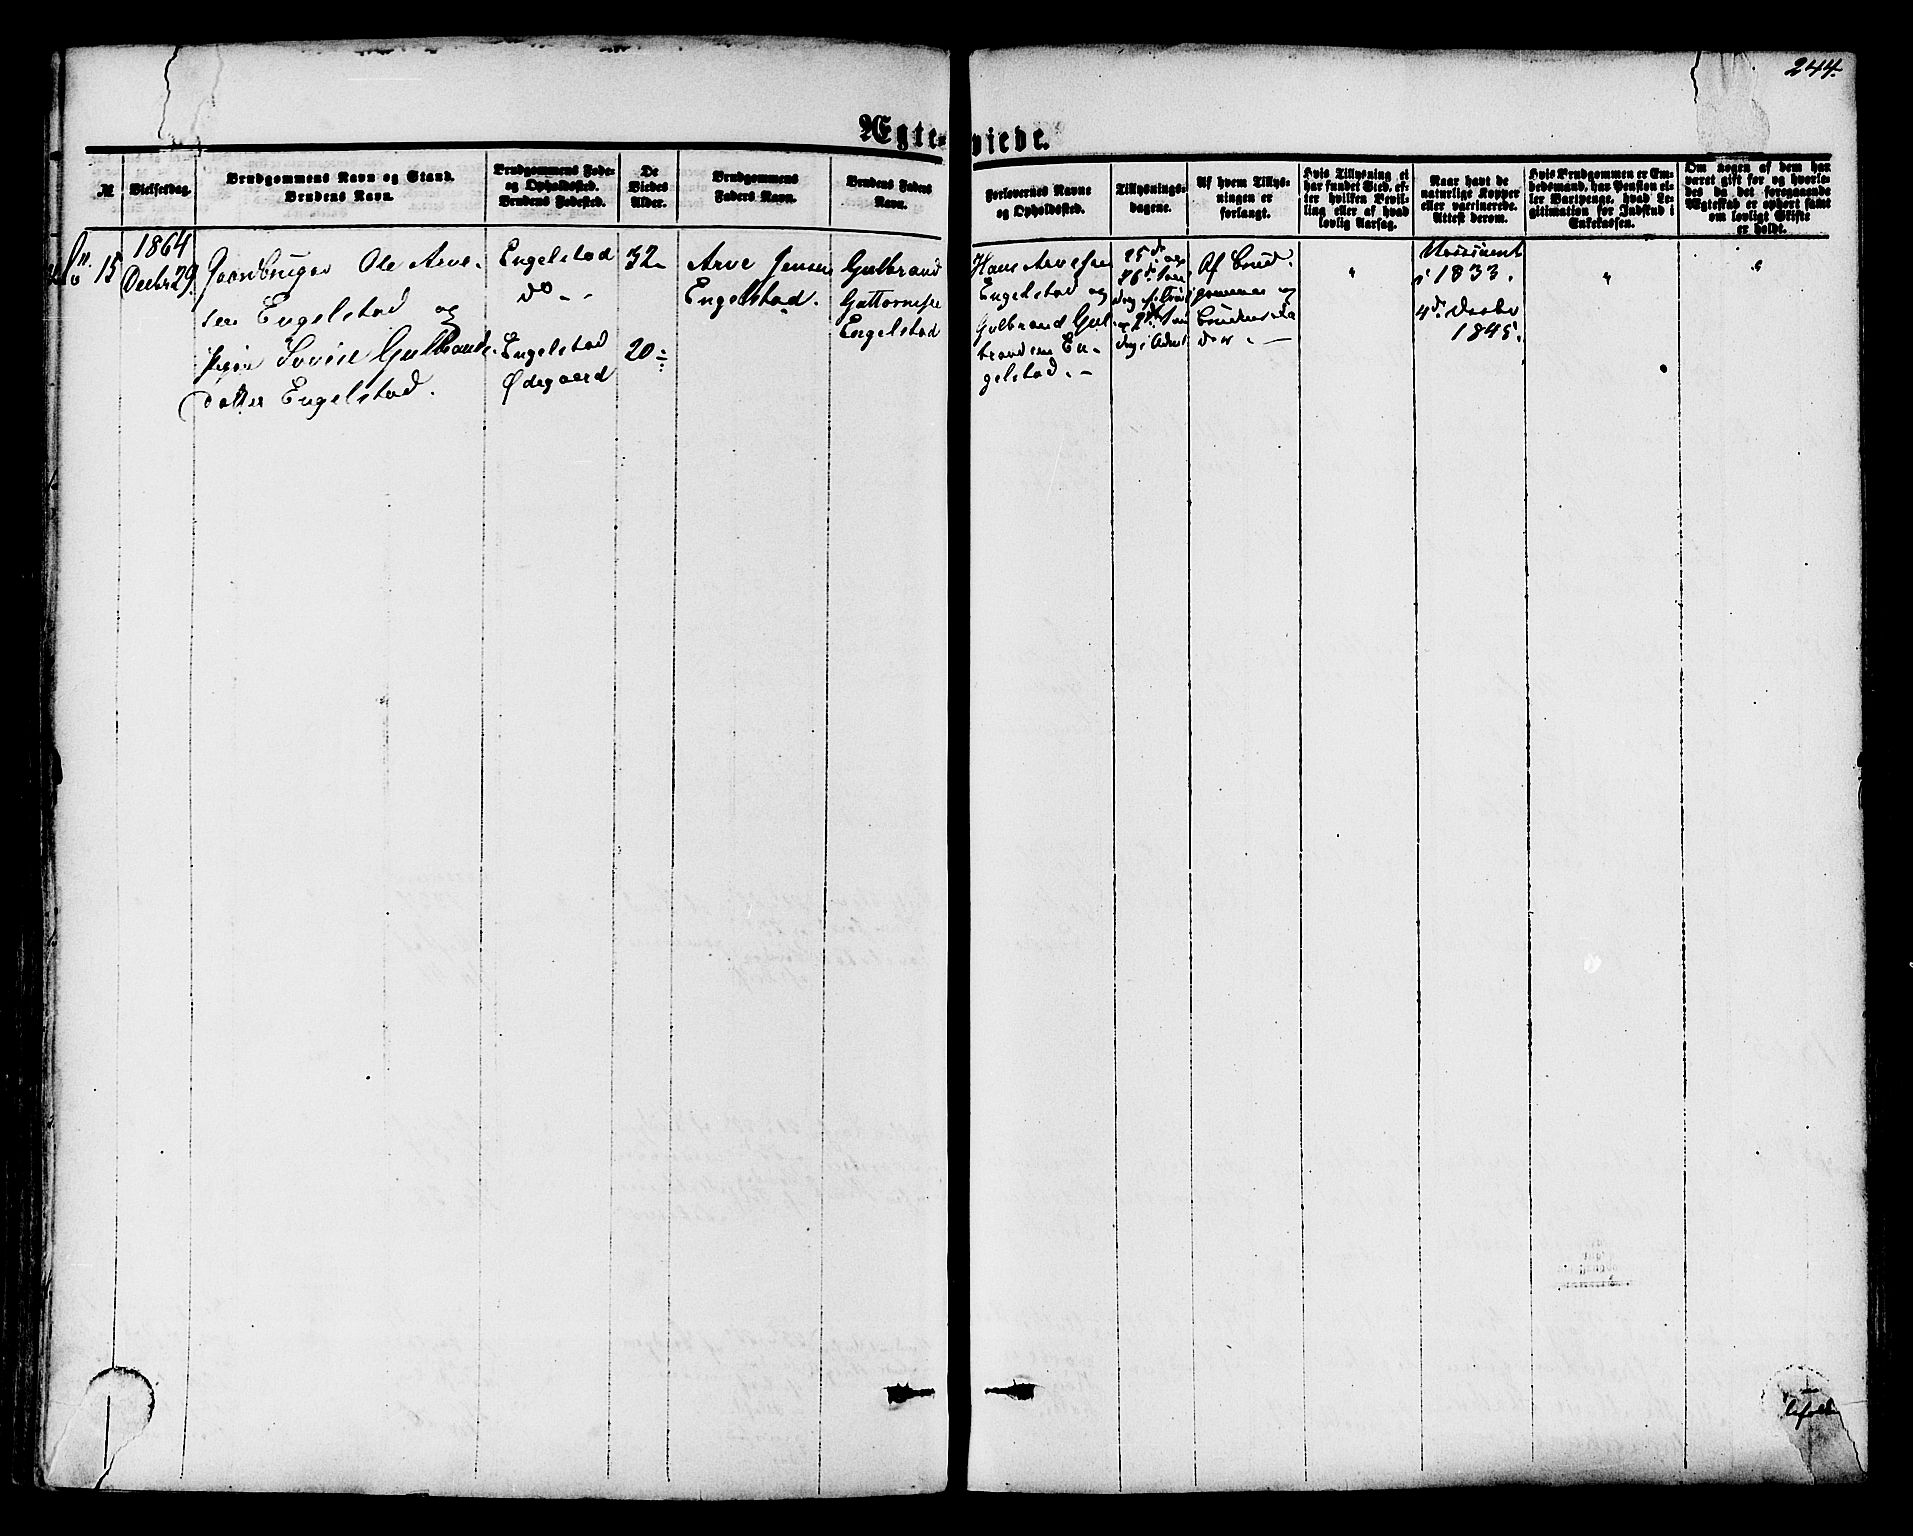 244.
Ægte-
viede.
№
Vielsesdag.
Brudgommens Navn og Stand.
Brudens Navn.
Brudgommens Føde-
og Opholdssted.
Brudens Fødested.
De
Viedes
Alder.
Brudgommens
Faders Navn.
Brudens Faders
Navn.
Forlovernes Navne
og Opholdssted.
Tillysnings-
dagene.
Af hvem Tillys-
ningen er
forlangt.
Hvis Tillysning ei
har fundet Sted, ef-
ter hvilken Bevil-
ling eller af hvad
lovlig Aarsag.
Naar havt de
naturlige Kopper
eller vaccinerede.
Attest derom.
Hvis Brudgommen er Em-
bedsmand, har Pension el-
ler Vartpenge, hvad Le-
gitimation for Indskud i
Enkekassen.
Om nogen af dem har
været gift før og hvorle-
des da det foregaaende
Ægteskab er ophørt samt
om lovligt Skifte
er holdt.
15
1864
Decbr 29
Gaardbruger Ole Arve-
sen Engelstad og
Pigen Lovise Gulbrands-
datter Engelstad.
Engelstad
do - -
Engelstad
Ødegaard
32
20
Arve Jensen
Engelstad.
Gulbrand
Guttormsen
Engelstad
Hans Arvesen
Engelstad og
Gulbrand Gul
brandsen En-
gelstad. -
25d og
26d Søn
dag
og 2den Søn
dag i Advent
Af Brud-
gommen og
Brudens Fa
der. -
"
i 1833.
4de Decbr
1845.
"
"